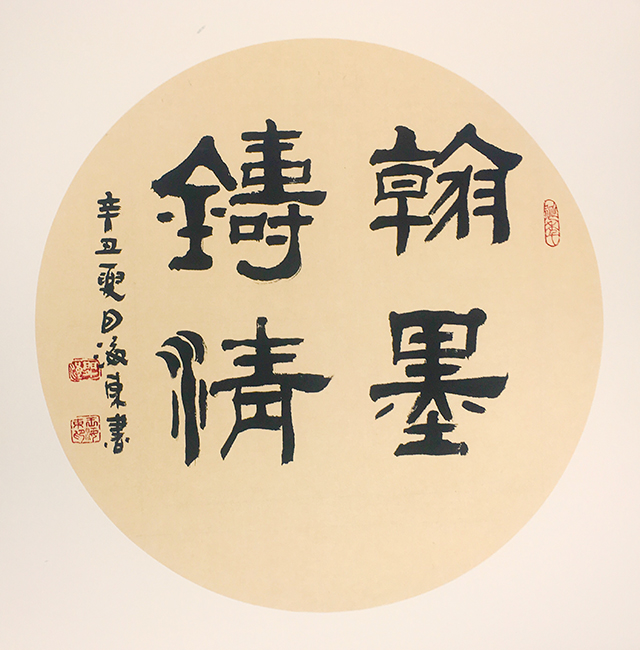 翰墨
鑄情
辛丑夏日海東書